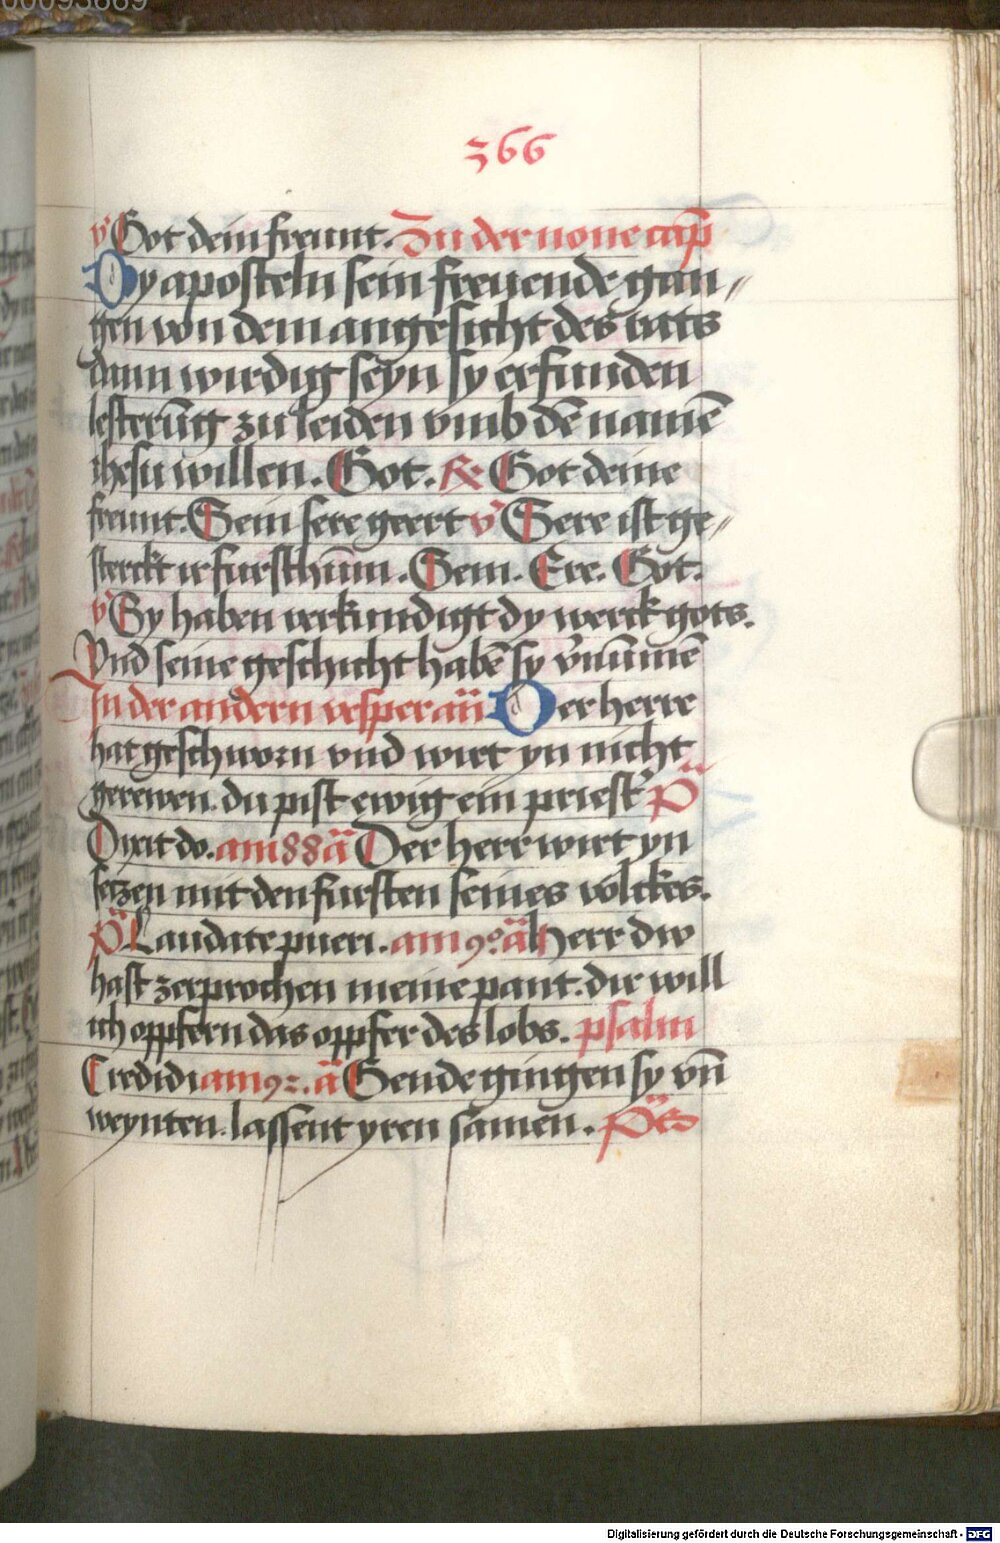 00093669
366
v̕ Got dein freunt. Zu der none cap̄
Dy aposteln sein freuende gan//
gen von dem angesicht des rats
dann wirdig seyn sy erfunden
lesterūg zu leiden vmb dē namē
ihesu willen. Got. R̷ Got deine
freunt. Sein sere geert v̕ Sere ist ge//
sterckt ir furstthūm. Sein. Ere. Got.
v̕ Sy haben verkundigt dy werck gots.
Vnd seine geschicht habē sy v̕nūmē
In der andern vesper an̄ Der herre
hat geschworn vnd wirt yn nicht
gerewen. du pist ewig ein priest̕ p̄s
Dixit do. am 88 ā Der herr wirt yn
setzen mit den fursten seines volckes.
p̄s Laudate pueri. am 90 ā herr dw
hast zerprochen meine pant. dir will
ich oppfern das oppfer des lobs. psalm
Credidi am 92. ā Gende gingen sy vn̄
weynten. lassent yren samen. p̄s
Digitalisierung gefördert durch die Deutsche Forschungsgemeinschaft - DFG